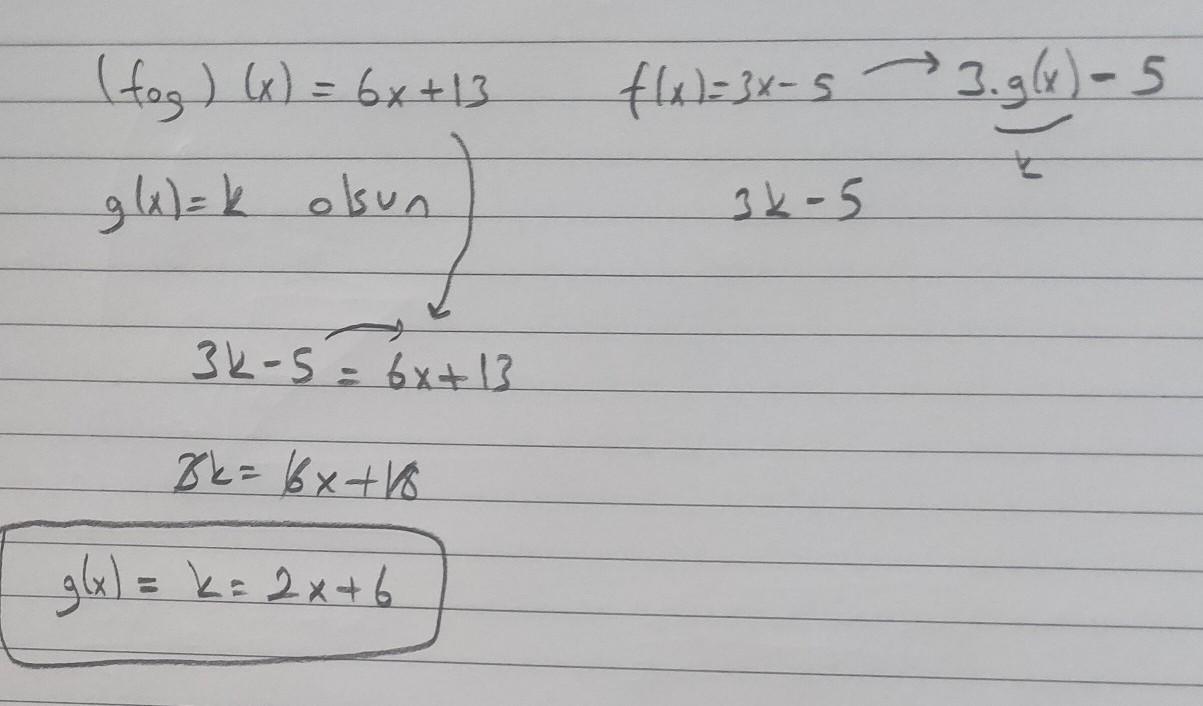 (fog) (x) = 6x+13 f(x)=3x-5 → 3.g(x)-5
k
g(x)=k olsun 3k-5
3k-5 = 6x+13
3k= 6x+18
g(x) = k= 2x+6